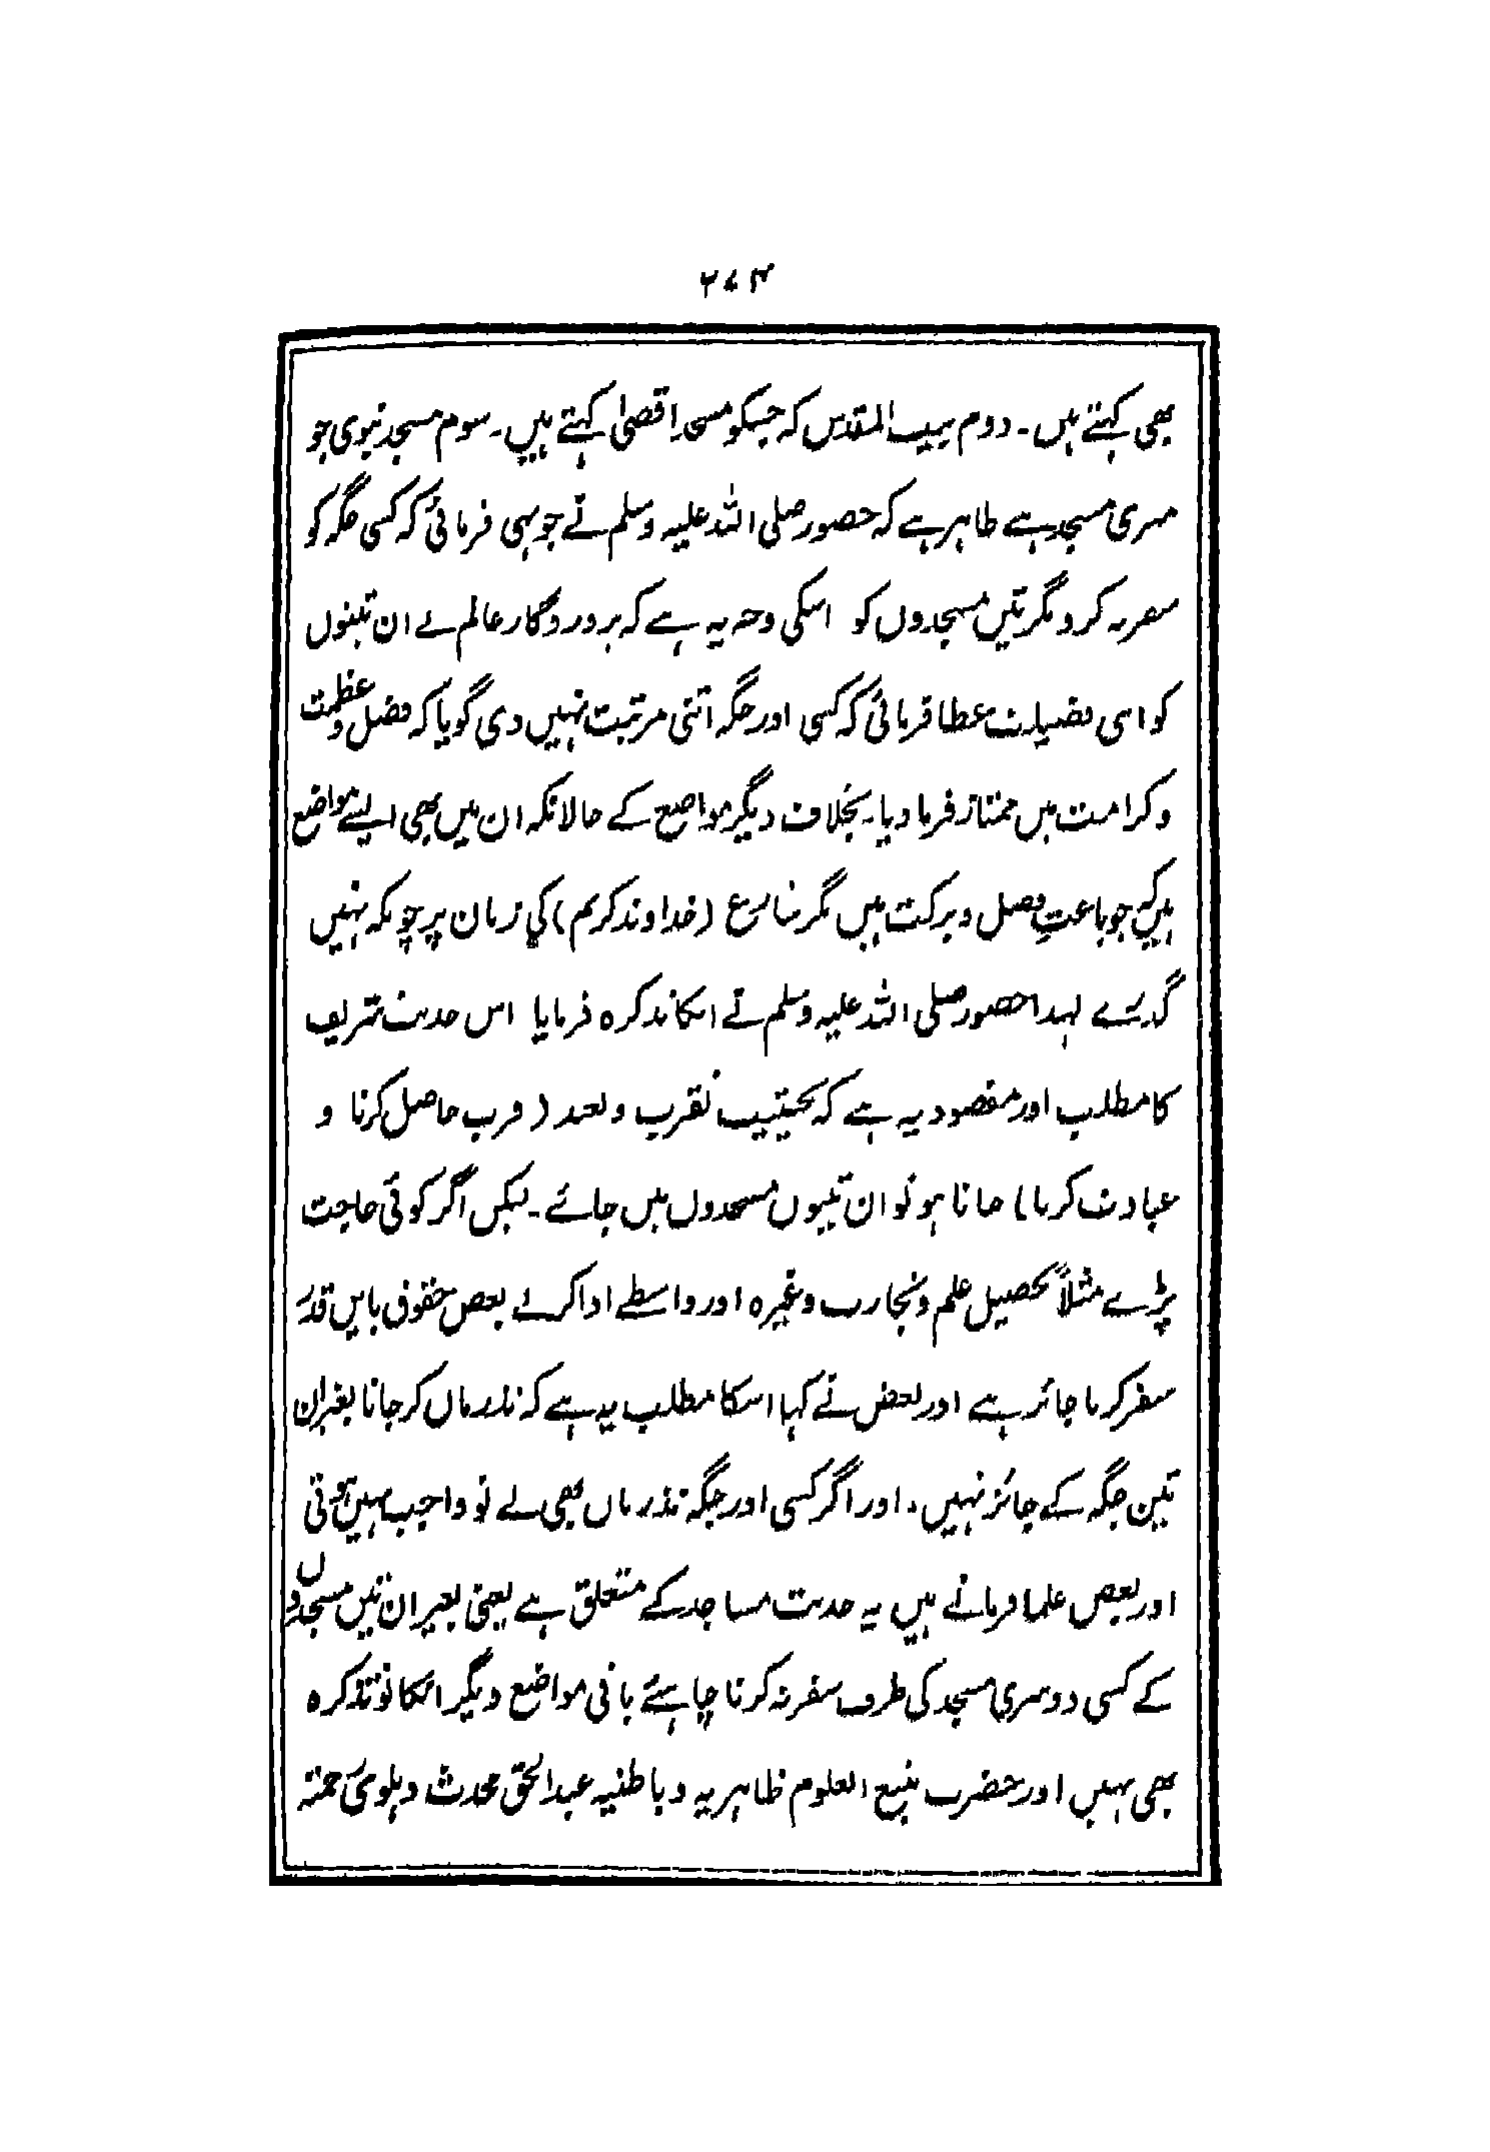 ۲۷۴
بھی کہتے ہیں۔ دوم بیت المقدس کہ جسکو مسجدِ اقصیٰ کہتے ہیں۔ سوم مسجد نبوی جو
میری مسجد ہے ظاہر ہے کہ حضور صلی اللہ علیہ وسلم نے جو نہی فرمائی کہ کسی جگہ کو
سفر نہ کرو مگر تین مسجدوں کو اسکی وجہ یہ ہے کہ پروردگار عالم نے ان تینوں
کو ایسی فضیلت عطا فرمائی کہ کسی اور جگہ اتنی مرتبت نہیں دی گویا کہ فضل و عظمت
و کرامت میں ممتاز فرما دیا۔ بخلاف دیگر مواضع کے حالانکہ ان میں بھی ایسے مواضع
ہیں کہ جو باعثِ فضل و برکت ہیں مگر شارع (خداوند کریم) کی زبان پر چونکہ نہیں
گذرے لہذا حضور صلی اللہ علیہ وسلم نے انکا تذکرہ فرمایا اس حدیث شریف
کا مطلب اور مقصود یہ ہے کہ بحیثیت تقرب و تعبد (قرب حاصل کرنا و
عبادت کرنا) جانا ہو تو ان تینوں مسجدوں میں جائے۔ لیکن اگر کوئی حاجت
پڑے مثلاً تحصیل علم و تجارت وغیرہ اور واسطے ادا کرنے بعض حقوق بایں قدر
سفر کرنا جائز ہے اور بعض نے کہا اسکا مطلب یہ ہے کہ نذر مان کر جانا بغیر ان
تین جگہ کے جائز نہیں، اور اگر کسی اور جگہ نذر مان بھی لے تو واجب نہیں ہوتی
اور بعض علما فرماتے ہیں یہ حدیث مساجد کے متعلق ہے یعنی بغیر ان تین مسجدوں
کے کسی دوسری مسجد کی طرف سفر نہ کرنا چاہئے باقی مواضع دیگر انکا تو تذکرہ
بھی نہیں اور حضرت منبع العلوم ظاہریہ و باطنیہ عبدالحق محدث دہلوی رحمتہ